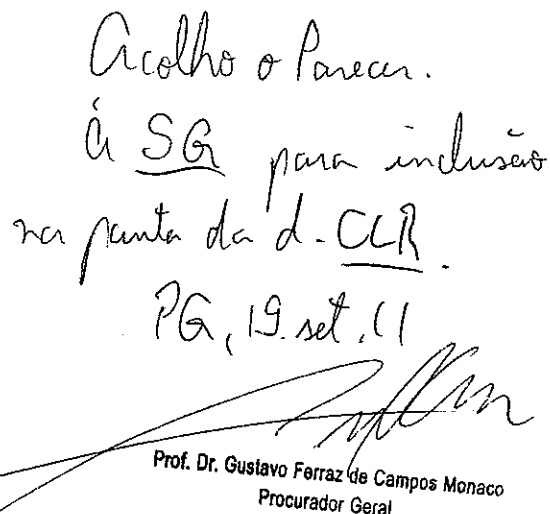 Acolho o Parecer.
À SG para inclusão
na pauta da d. CLR.
PG, 19.set.11
Prof. Dr. Gustavo Ferraz de Campos Monaco
Procurador Geral